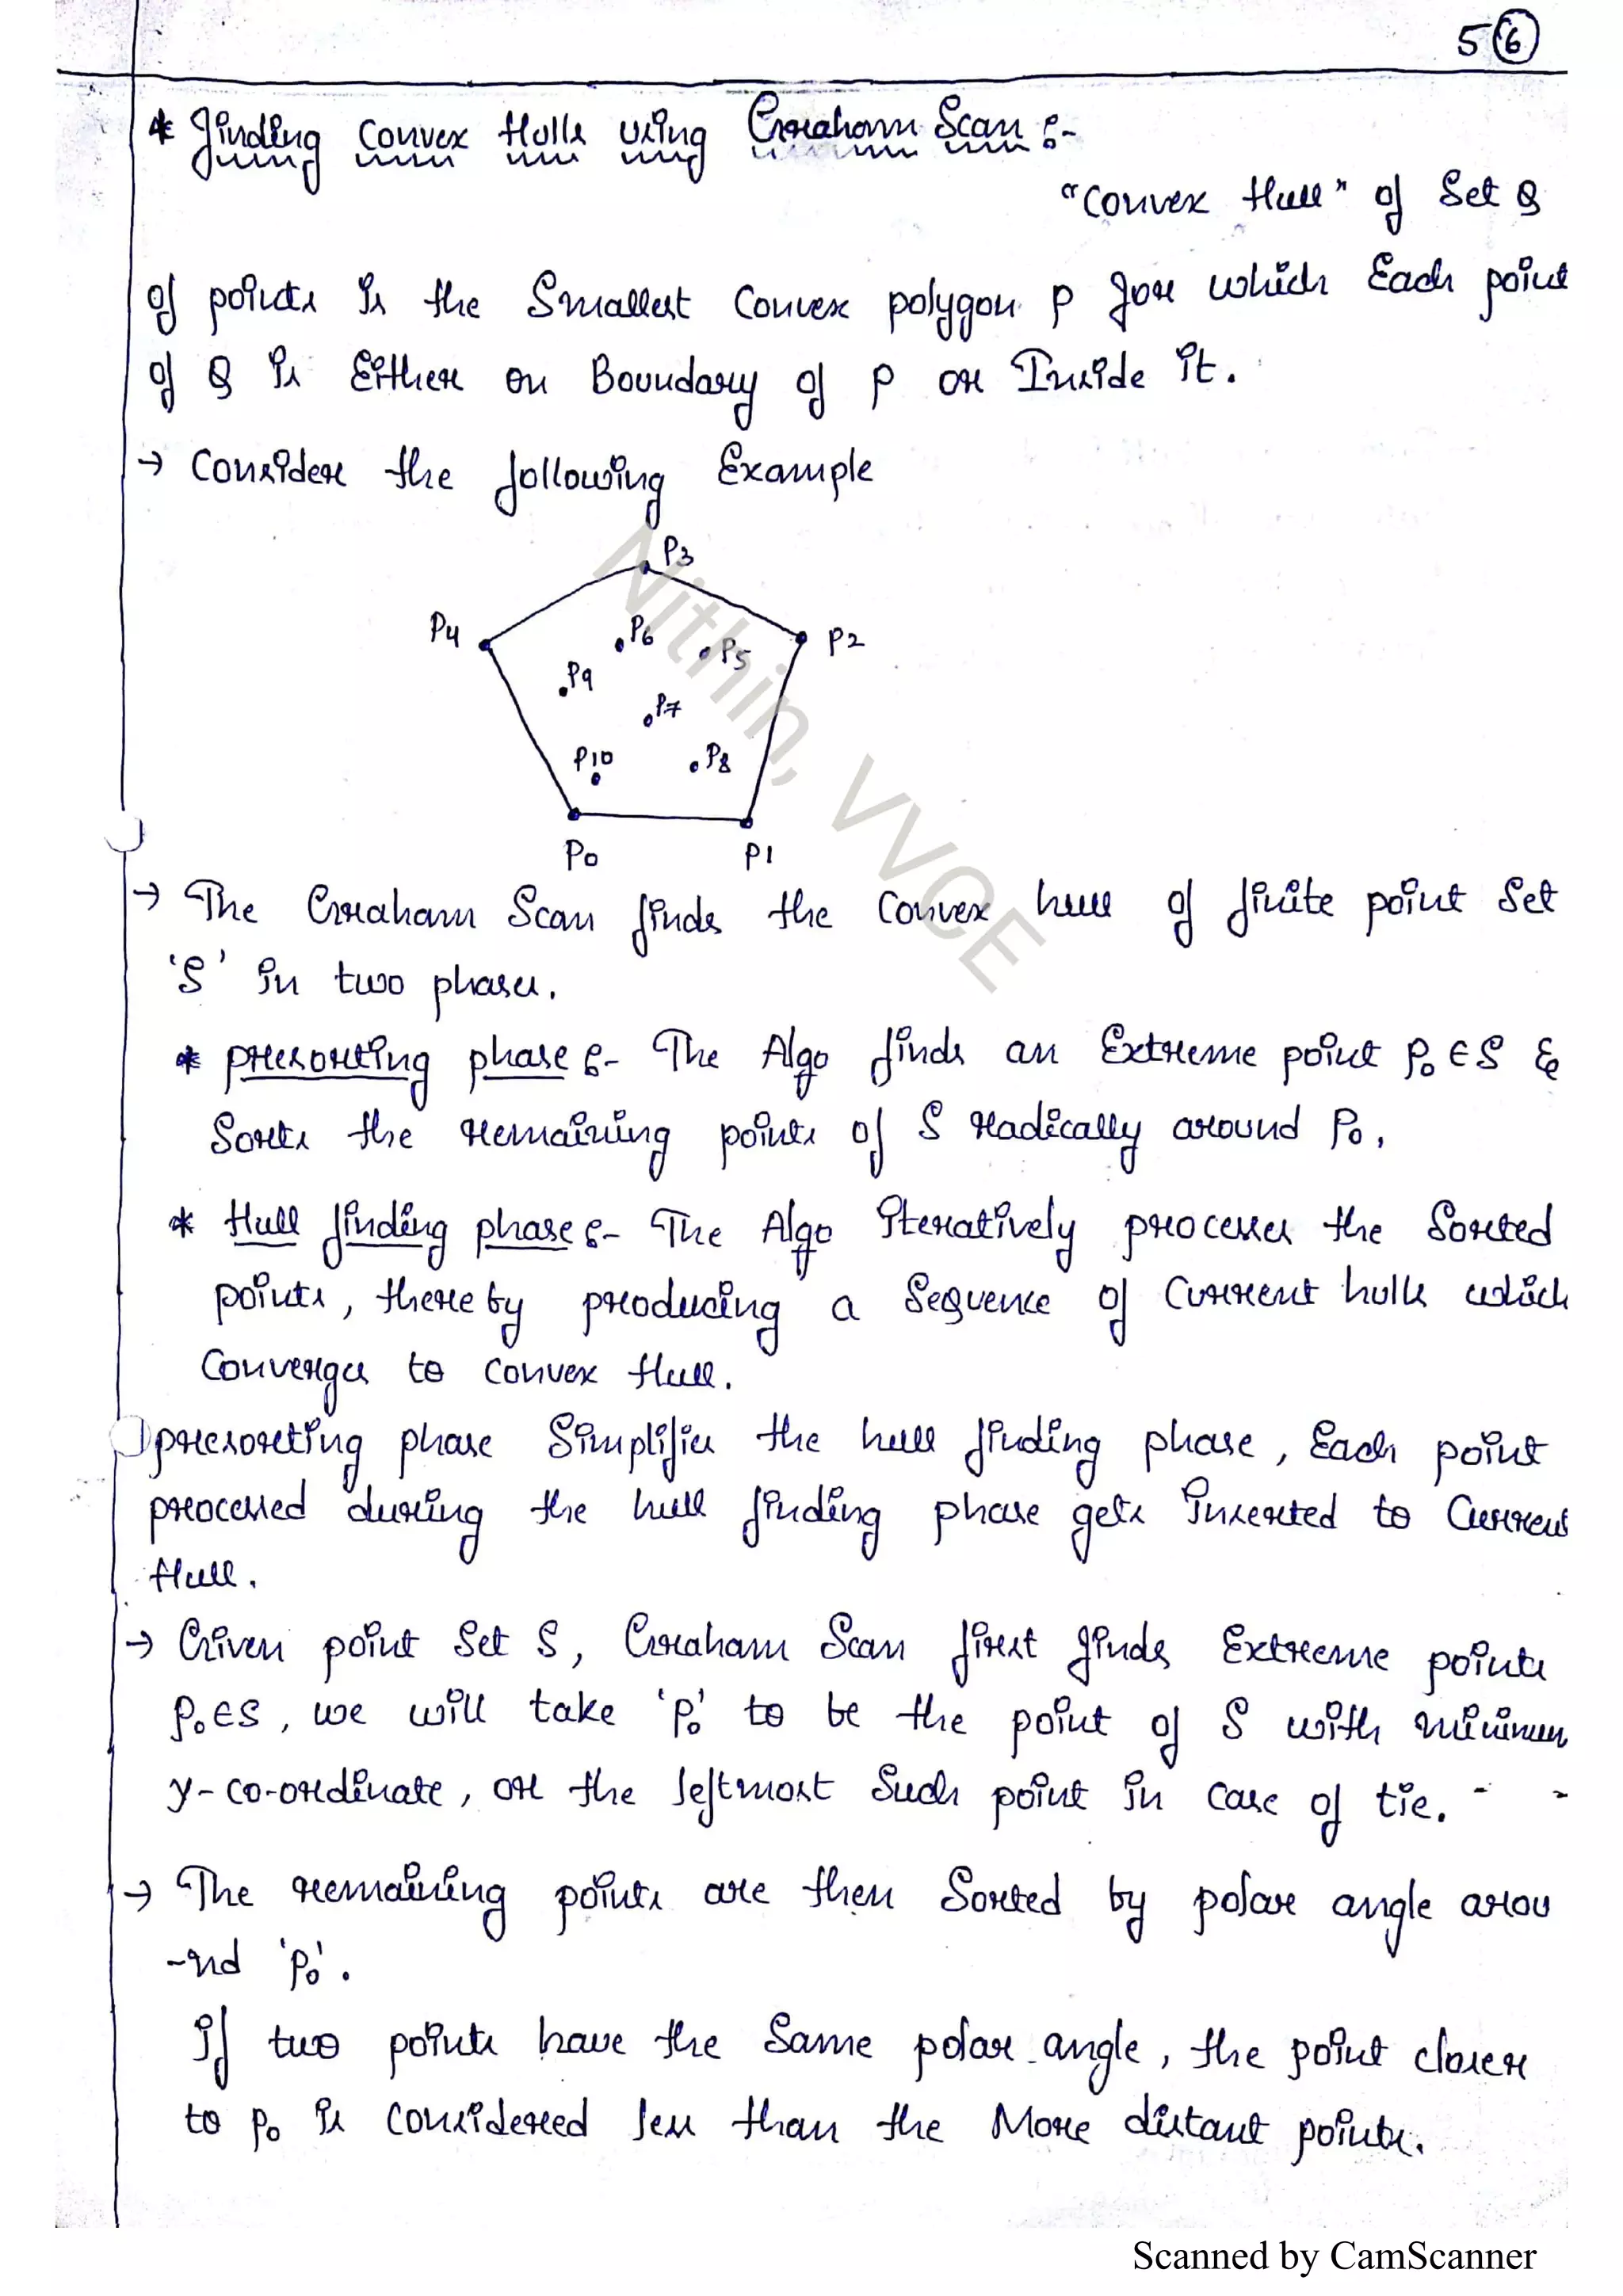 5 6
* Finding Convex Hulls using Graham Scan :-
"Convex Hull" of Set Q
of points is the Smallest Convex polygon P for which Each point
of Q is Either on Boundary of P or Inside it.
→ Consider the following Example
P3
P4
P6
P5
P2
P9
P7
P10
P8
P0
P1
→ The Graham Scan finds the Convex hull of finite point Set
'S' in two phases.
* presorting phase :- The Algo finds an Extreme point P₀ ∈ S &
Sorts the remaining points of S radically around P₀.
* Hull finding phase :- The Algo iteratively processes the Sorted
points, there by producing a Sequence of Current hulls which
Converges to convex Hull.
presorting phase Simplifies the hull finding phase, Each point
processed during the hull finding phase gets inserted to Current
Hull.
→ Given point Set S, Graham Scan first finds Extreme points
P₀ ∈ S, we will take 'P₀' to be the point of S with minimum
y-co-ordinate, or the leftmost Such point in case of tie.
→ The remaining points are then Sorted by polar angle arou
-nd 'P₀'.
If two points have the Same polar angle, the point closer
to P₀ is considered less than the More distant points.
Nithin, VVCE
Scanned by CamScanner